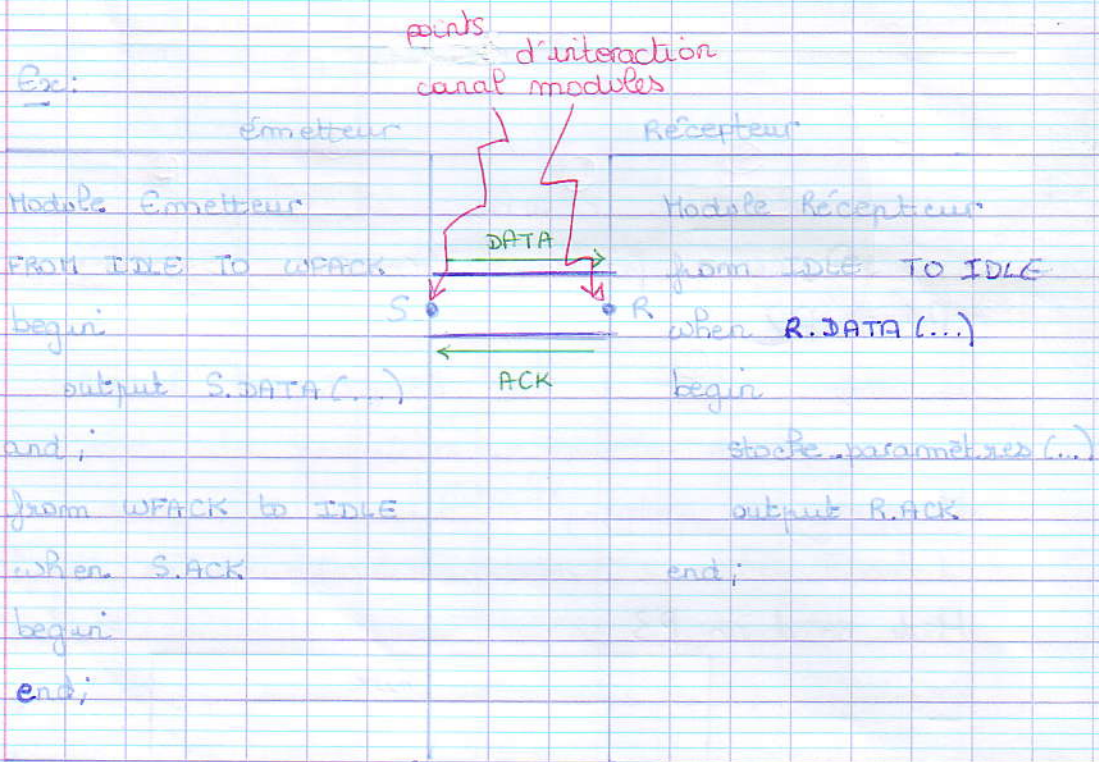 points
d'interaction
canal modules
Ex:
émetteur
Récepteur
Module Emetteur
FROM IDLE TO WFACK
begin
output S.DATA (...)
and;
from WFACK to IDLE
when S.ACK
begin
end;
DATA
S
R
ACK
Module Récepteur
from IDLE TO IDLE
when R.DATA (...)
begin
stocke.paramètres (...)
output R.ACK
end;